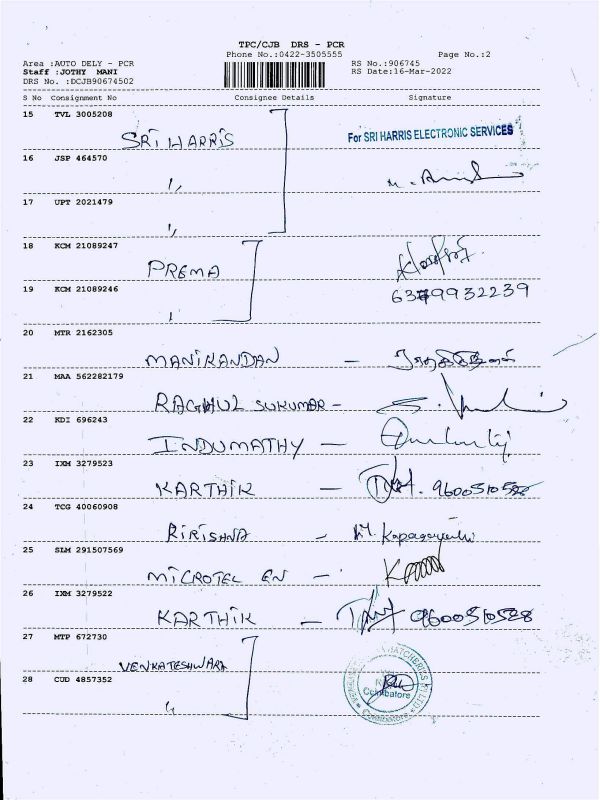 TPC/CJB DRS - PCR
Phone No.:0422-3505555 Page No.:2
Area :AUTO DELY - PCR RS No.:906745
Staff :JOTHY MANI RS Date:16-Mar-2022
DRS No. :DCJB90674502
S No Consignment No Consignee Details Signature
15 TVL 3005208
SRI HARRIS For SRI HARRIS ELECTRONIC SERVICES
16 JSP 464570
17 UPT 2021479
18 KCM 21089247
PREMA
19 KCM 21089246 6379932239
20 MTR 2162305
MANIKANDAN -
21 MAA 562282179
RAGHUL SUKUMAR -
22 KDI 696243
INDUMATHY -
23 IXM 3279523
KARTHIK - 9600510528
24 TCG 40060908
RIRISHNA -
25 SLM 291507569
MICROTEL EN -
26 IXM 3279522
KARTHIK - 9600510528
27 MTP 672730
VENKATESHWARA
28 CUD 4857352
Coimbatore